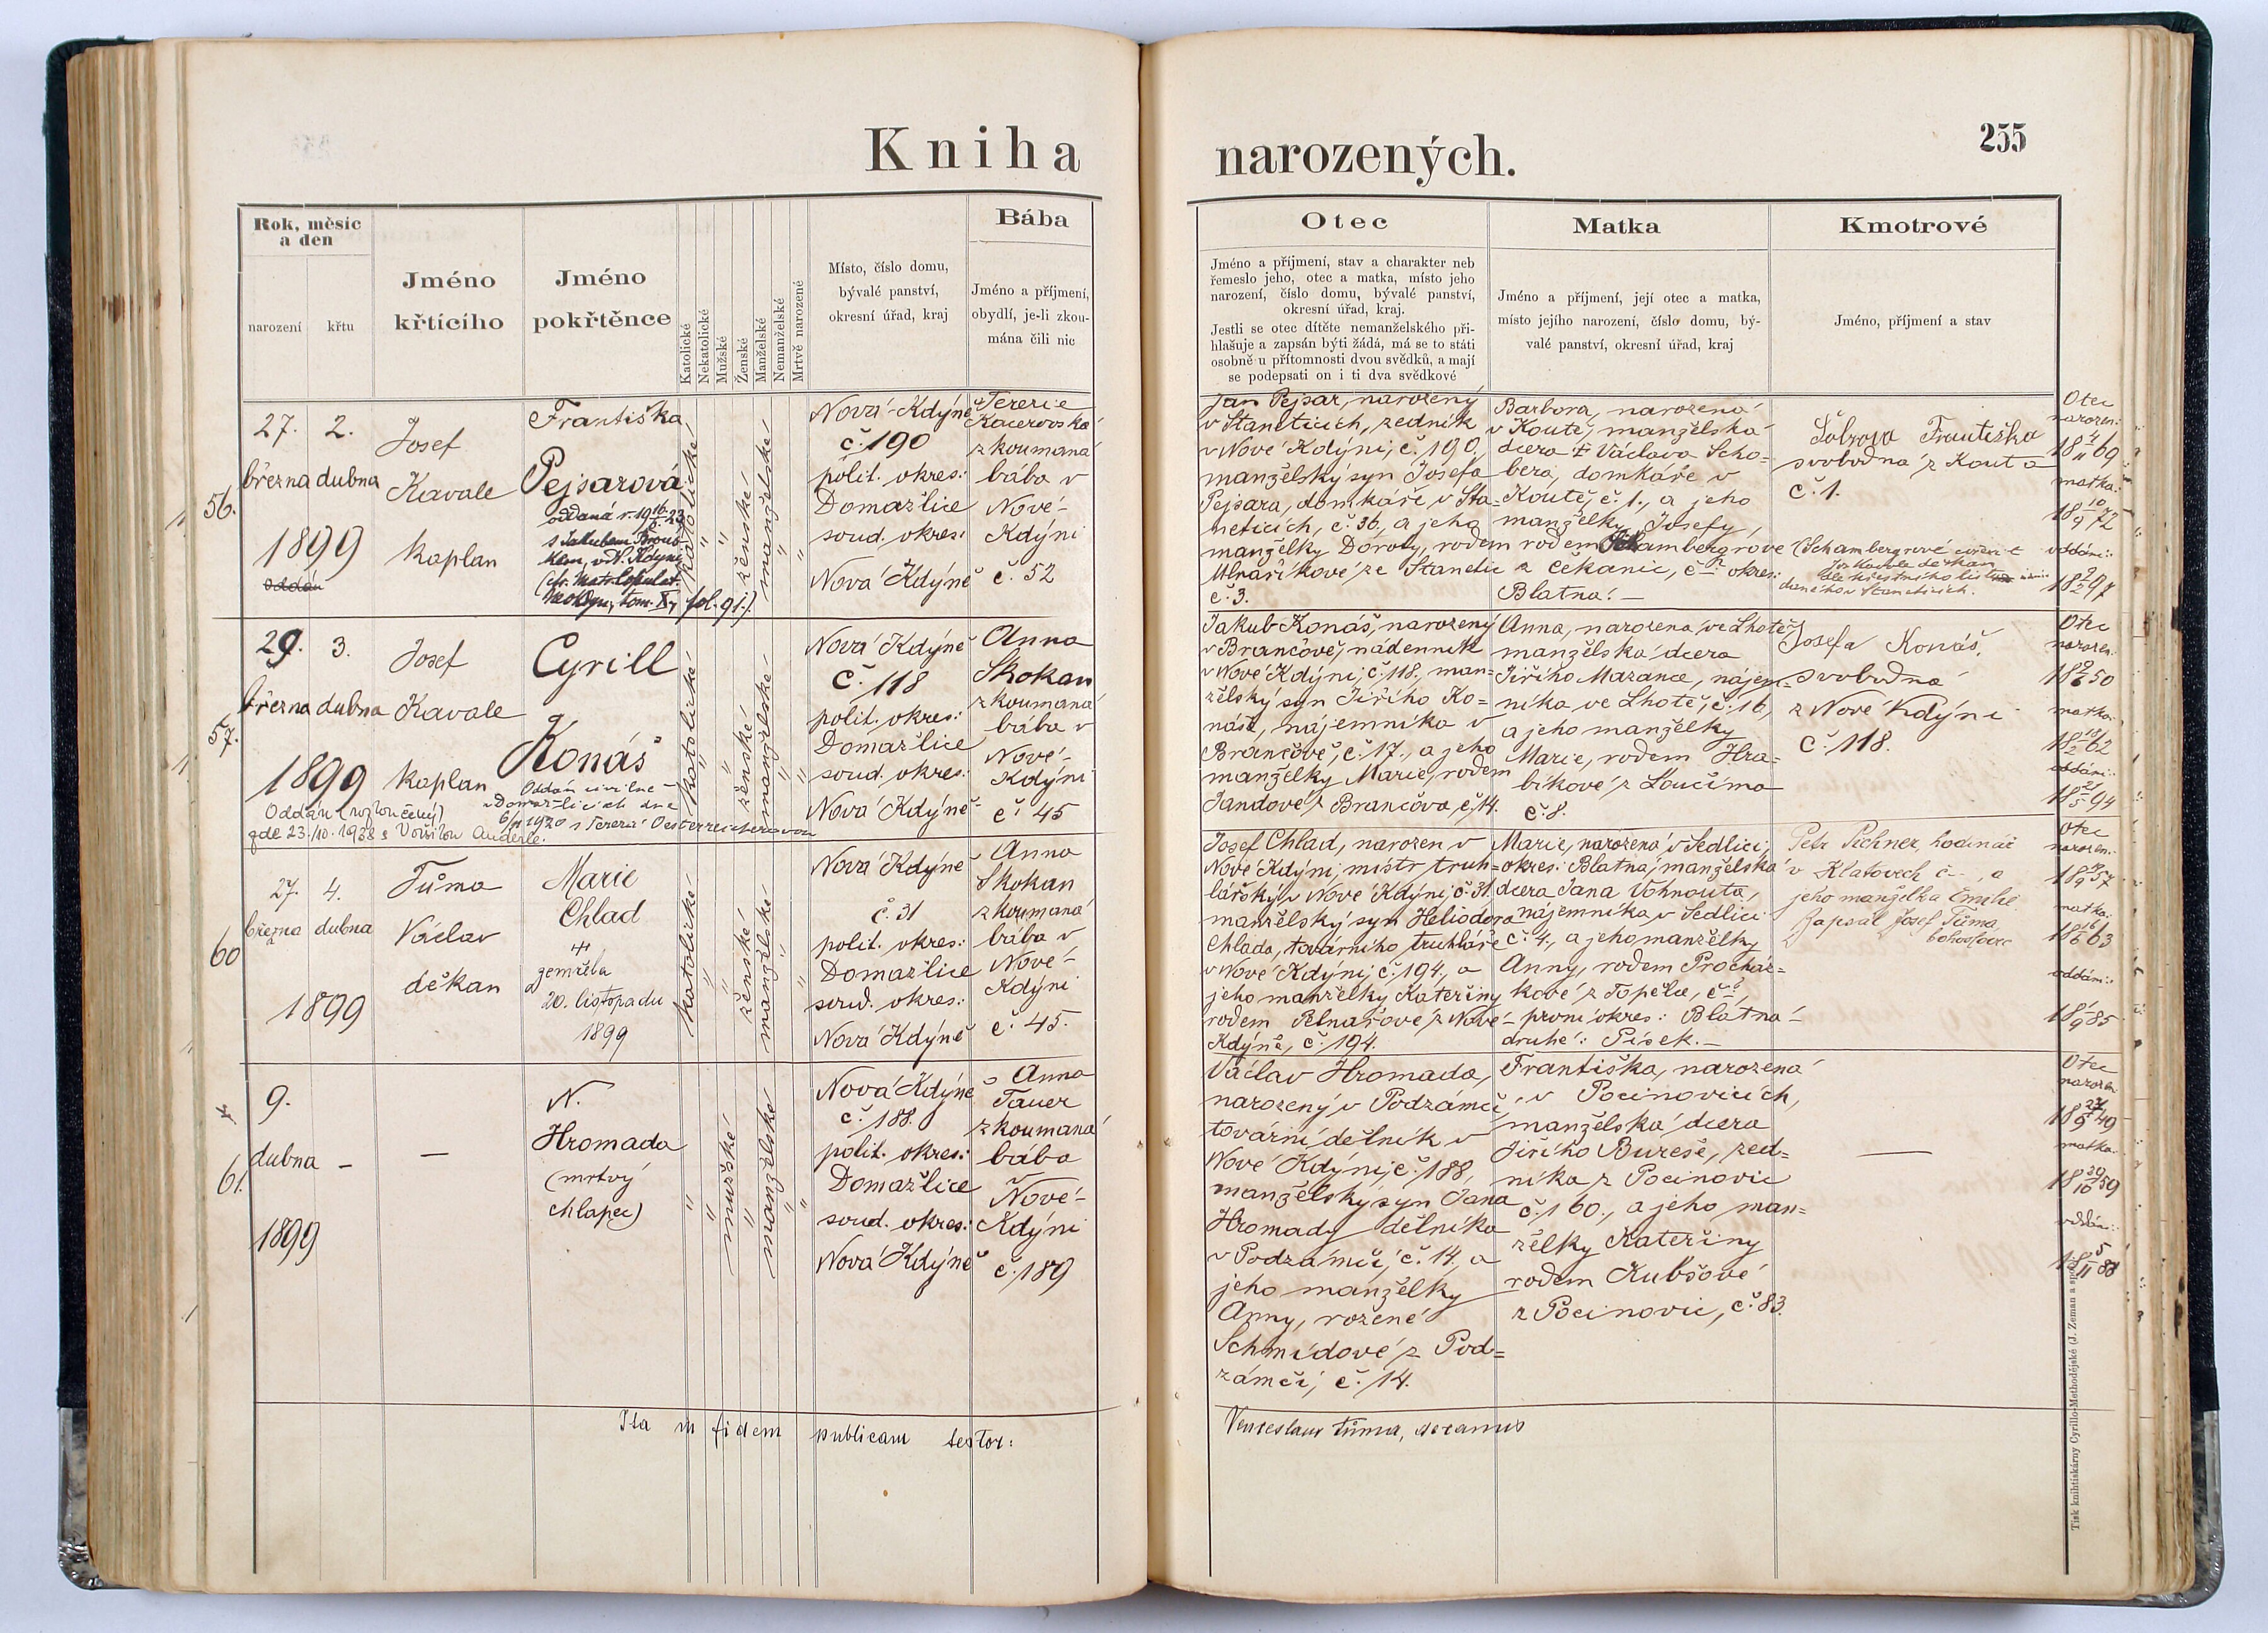 Kniha
narozených.
255
Rok, měsíc
a den
narození
křtu
Jméno
křtícího
Jméno
pokřtěnce
Katolické
Nekatolické
Mužské
Ženské
Manželské
Nemanželské
Mrtvě narozené
Místo, číslo domu,
bývalé panství,
okresní úřad, kraj
Bába
Jméno a příjmení,
obydlí, je-li zkou-
mána čili nic
Otec
Jméno a příjmení, stav a charakter neb
řemeslo jeho, otec a matka, místo jeho
narození, číslo domu, bývalé panství,
okresní úřad, kraj.
Jestli se otec dítěte nemanželského při-
hlašuje a zapsán býti žádá, má se to státi
osobně u přítomnosti dvou svědků, a mají
se podepsati on i ti dva svědkové
Matka
Jméno a příjmení, její otec a matka,
místo jejího narození, číslo domu, bý-
valé panství, okresní úřad, kraj
Kmotrové
Jméno, příjmení a stav
56.
27.
března
1899
oddán
2.
dubna
Josef
Kavale
kaplan
Františka
Pejsarová
oddaná r. 19
s Jakubem
fol. 91.)
katolické
"
"
ženské
manželské
"
"
Nová Kdýně
č. 190
polit. okres:
Domažlice
soud. okres:
Nová Kdýně
Terezie
Kacerovská
zkoumaná
bába v
Nové-
Kdýni
č. 52
Jan Pejsar, narozený
v Staněticích, zedník
v Nové Kdýni, č. 190.,
manželský syn Josefa
Pejsara, domkáře v Sta-
něticích, č. 36., a jeho
manželky Doroty, rodem
Mlnaříkové ze Stanětic
č. 3.
Barbora, narozená
v Koutě, manželská
dcera Václava Scho-
bera, domkáře v
Koutě, č. 1., a jeho
manželky Josefy,
rodem Schambergrové
z Čekanic, okres:
Blatná.
Františka
svobodná z Kouta
č. 1.
(Schambergrové
Otec
narozen:
18 69
matka:
18 72
oddáni:
18 97
57.
29.
března
1899
3.
dubna
Josef
Kavale
kaplan
Cyrill
Konáš
Oddán civilně
v Domažlicích dne
6/11 1920 s Terezií Oesterreicherovou
Oddán (rozloučený)
zde 23./10. 1938 s Voršilou Anderle.
katolické
"
"
ženské
manželské
"
"
Nová Kdýně
č. 118
polit. okres:
Domažlice
soud. okres:
Nová Kdýně
Anna
Skokan
zkoumaná
bába v
Nové-
Kdýni
č. 45
Jakub Konáš, narozený
v Brančově, nádenník
v Nové Kdýni, č. 118., man-
želský syn Jiřího Ko-
náše, nájemníka v
Brančově, č. 17., a jeho
manželky Marie, rodem
Jandové z Brančova, č. 14.
Anna, narozena ve Lhotě,
manželská dcera
Jiřího Mazance, nájem-
níka ve Lhotě, č. 16,
a jeho manželky
Marie, rodem Hra-
bíkové z Loučima
č. 8.
Josefa Konáš,
svobodná
z Nové Kdýni
č. 118.
Otec
narozen:
18 50
matka:
18 62
oddáni:
18 94
60
27.
března
1899
4.
dubna
Tůma
Václav
děkan
Marie
Chlad
zemřela
20. listopadu
1899
katolické
"
"
ženské
manželské
"
"
Nová Kdýně
č. 31
polit. okres:
Domažlice
soud. okres:
Nová Kdýně
Anna
Skokan
zkoumaná
bába v
Nové-
Kdýni
č. 45.
Josef Chlad, narozen v
Nové Kdýni, mistr truh-
lářský v Nové Kdýni č. 31,
manželský syn Heliodora
Chlada, továrního truhláře
v Nové Kdýni, č. 194., a
jeho manželky Kateřiny
rodem Pelnařové z Nové
Kdýně, č. 194.
Marie, narozená v Sedlici,
okres: Blatná, manželská
dcera Jana Vohnouta,
nájemníka v Sedlici
č. 4., a jeho manželky
Anny, rodem Procház-
kové z Topělce,
první okres: Blatná
druhé: Písek.
Petr hodinář
v Klatovech č , a
jeho manželka Emilie
Zapsal Josef Tůma,
bohoslovec
Otec
narozen:
18 57
matka:
18 63
oddáni:
18 85
61.
9.
dubna
1899
–
—
N.
Hromada
(mrtvý
chlapec)
"
"
mužské
"
manželské
"
"
Nová Kdýně
č. 188.
polit. okres:
Domažlice
soud. okres:
Nová Kdýně
Anna
Tauer
zkoumaná
bába
Nové-
Kdýni
č. 189
Václav Hromada,
narozený v Podzámčí,
tovární dělník v
Nové Kdýni, č. 188,
manželský syn Jana
Hromady dělníka
v Podzámčí, č. 14., a
jeho manželky
Anny, rozené
Schmidové z Pod-
zámčí, č. 14.
Františka, narozená
v Pocinovicích,
manželská dcera
Jiřího Bureše, zed-
níka z Pocinovic
č. 160., a jeho man-
želky Kateřiny
rodem Kubšové
z Pocinovic, č. 83.
—
Otec
narozen:
18 49
matka:
18 59
oddáni:
18 88
Ita in fidem publicam testor:
Venceslaus Tůma, decanus
Tisk knihtiskárny Cyrillo-Methodějské (J. Zeman a spol.)